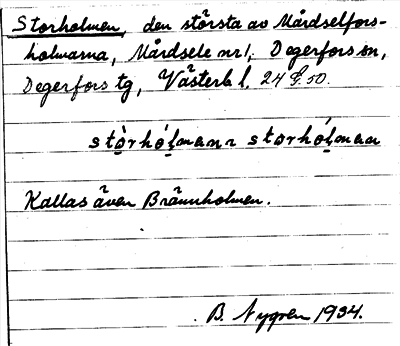 Storholmen, den största av Mårdselfors-
holmarna, Mårdsele nr 1, Degerfors sn,
Degerfors tg, Västerb. l. 24 G. 50.
stòrhó̱lmann storhó̱lman
Kallas även Brännholmen.
B. Nygren 1934.